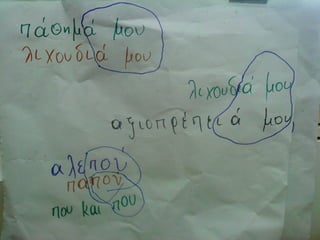 πάθημά μου
λιχουδιά μου
λιχουδιά μου
αξιοπρέπειά μου
αλεπού
παπού
που και που